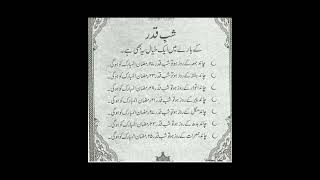 شبِ قدر
کے بارے میں ایک خیال یہ بھی ہے۔
چاند جمعہ کے روز ہو تو شب قدر رمضان المبارک کو ہوگی۔
چاند ہفتہ کے روز ہو تو شب قدر ۲۳ رمضان المبارک کو ہوگی۔
چاند اتوار کے روز ہو تو شب قدر رمضان المبارک کو ہوگی۔
چاند پیر کے روز ہو تو شب قدر رمضان المبارک کو ہوگی۔
چاند منگل کے روز ہو تو شب قدر رمضان المبارک کو ہوگی۔
چاند بدھ کے روز ہو تو شب قدر رمضان المبارک کو ہوگی۔
چاند جمعرات کے روز ہو تو شب قدر ۲۵ رمضان المبارک کو ہوگی۔